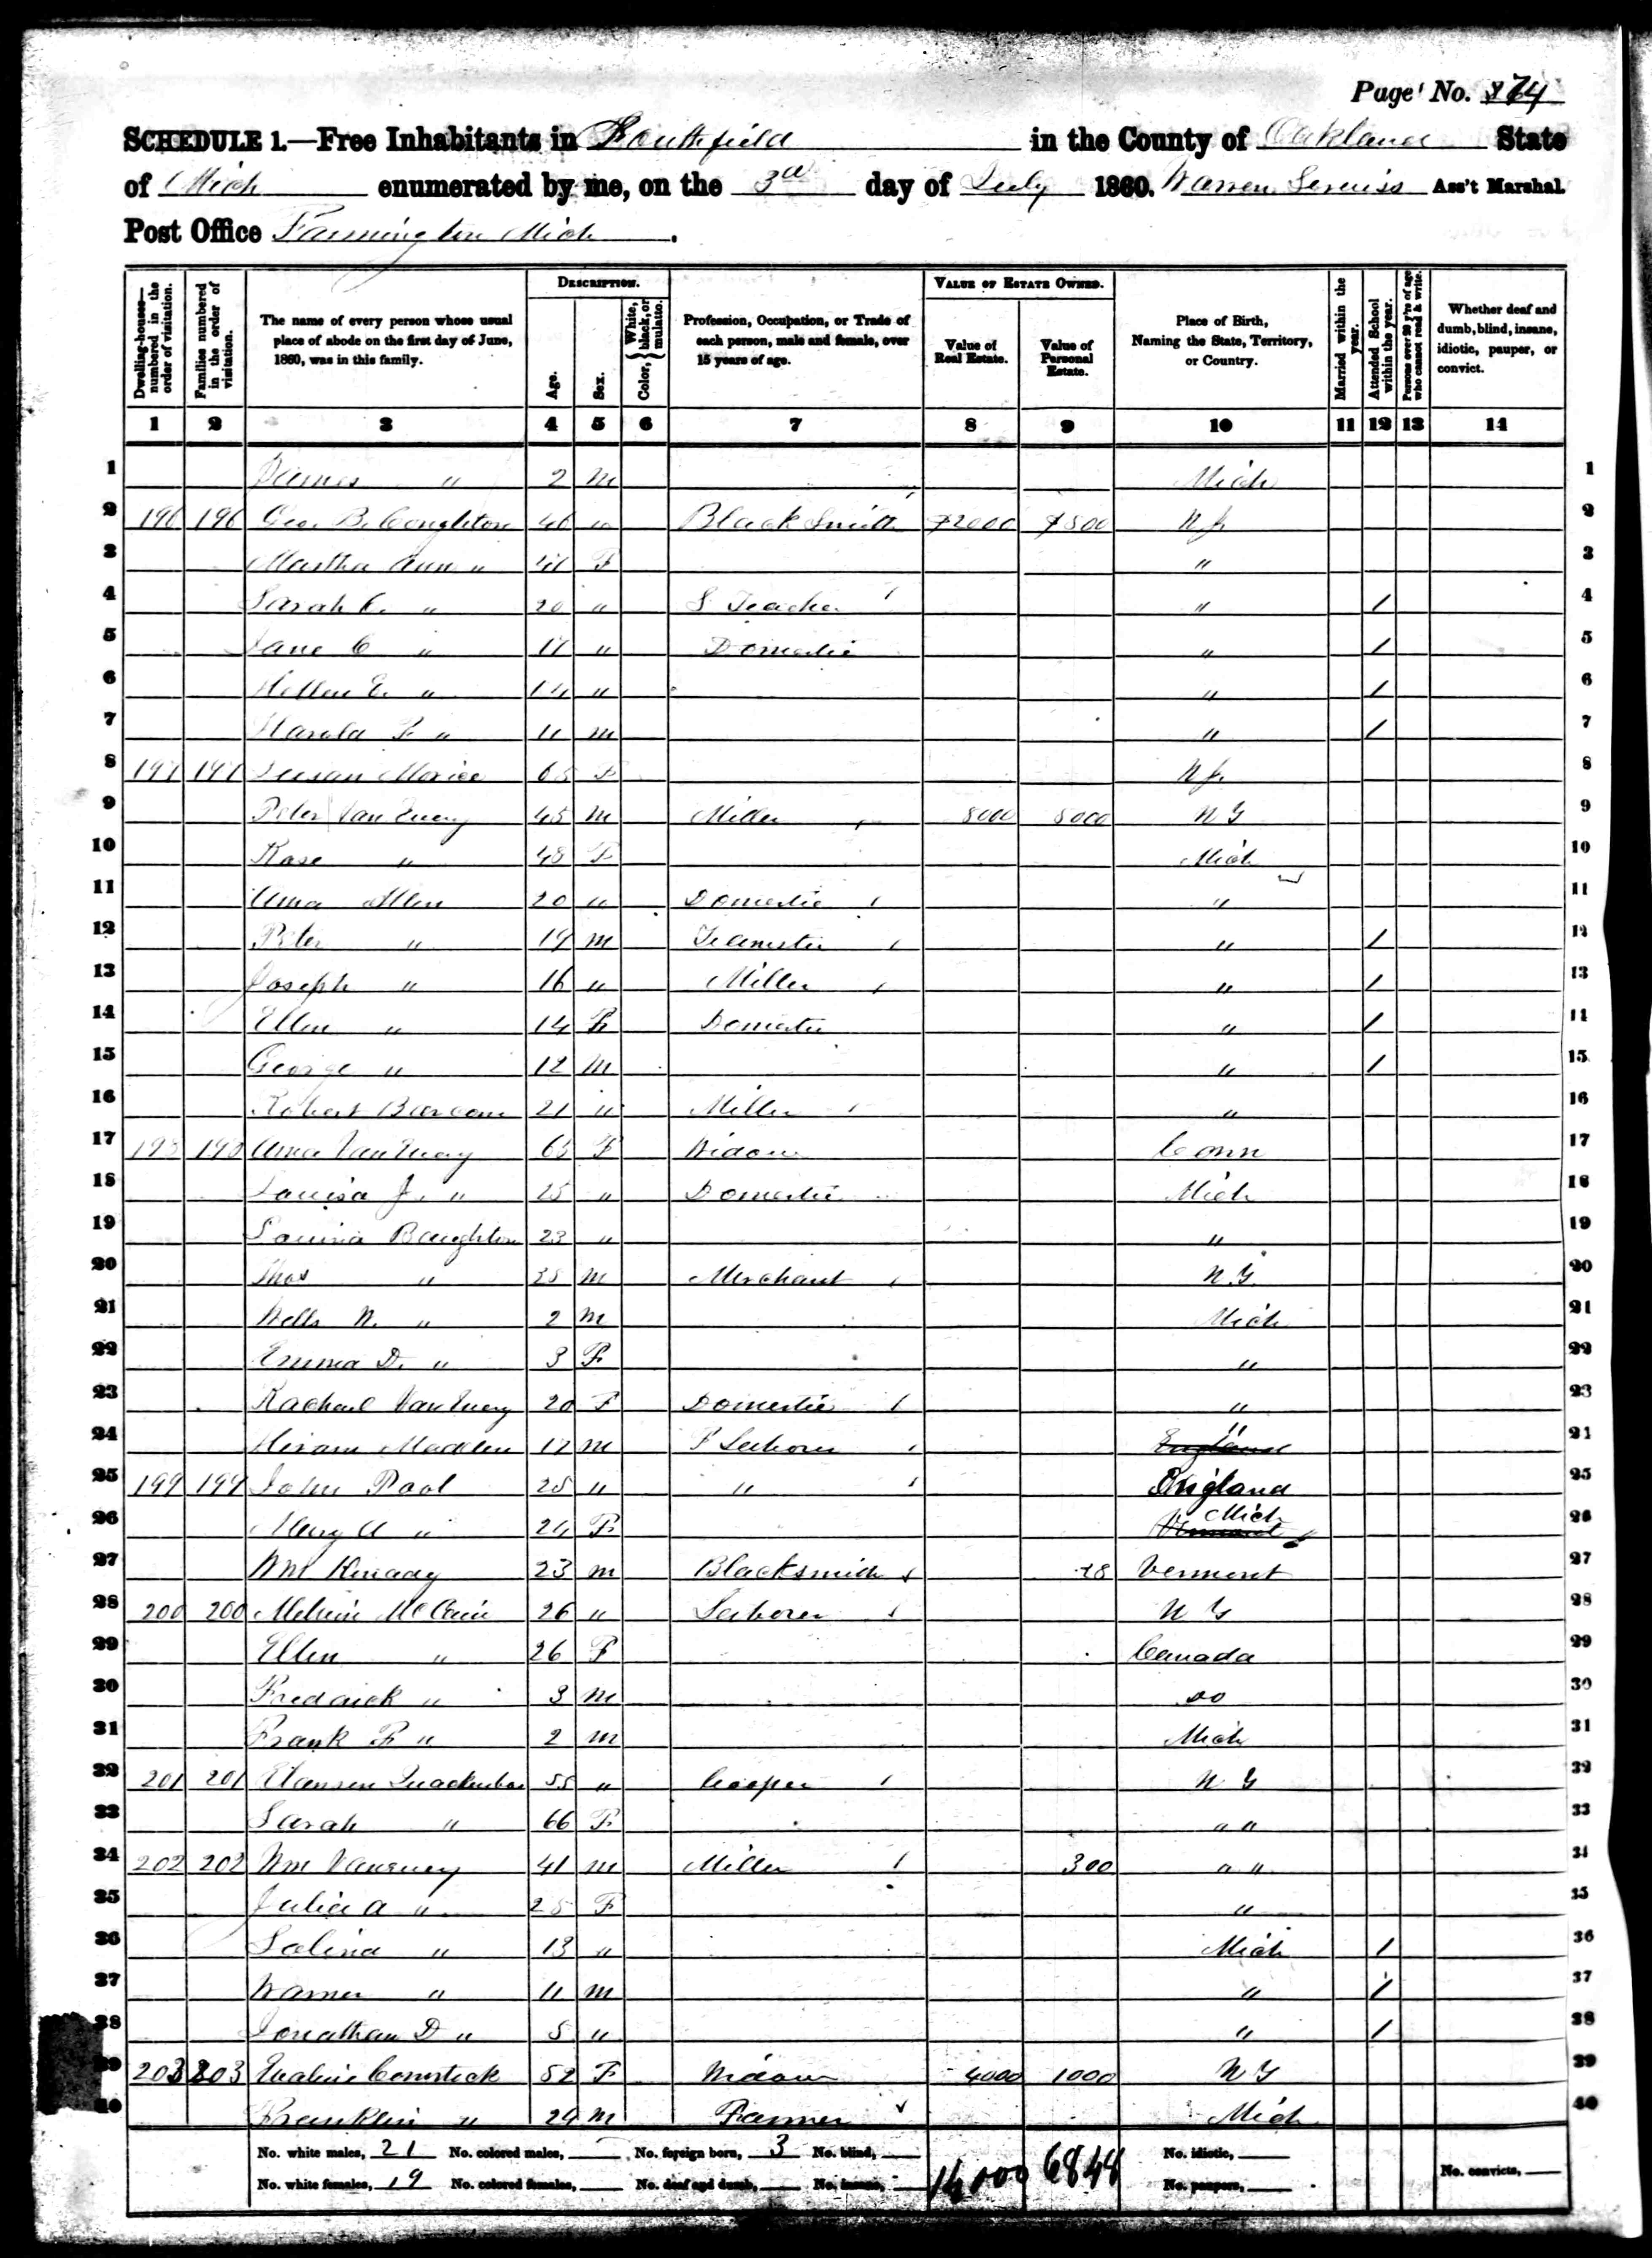 Page No. 374
SCHEDULE 1.—Free Inhabitants in Southfield in the County of Oakland State
of Mich enumerated by me, on the 3d day of July 1860. Warren Ass't Marshal.
Post Office Farmington Mich.
Dwelling-houses—numbered in the order of visitation.
Families numbered in the order of visitation.
The name of every person whose usual place of abode on the first day of June, 1860, was in this family.
DESCRIPTION.
Age.
Sex.
Color, { White, black, or mulatto.
Profession, Occupation, or Trade of each person, male and female, over 15 years of age.
VALUE OF ESTATE OWNED.
Value of Real Estate.
Value of Personal Estate.
Place of Birth, Naming the State, Territory, or Country.
Married within the year.
Attended School within the year.
Persons over 20 y'rs of age who cannot read & write.
Whether deaf and dumb, blind, insane, idiotic, pauper, or convict.
1 2 3 4 5 6 7 8 9 10 11 12 13 14
1 James " 2 m Mich 1
2 196 196 Geo. B. 46 " Black Smith $2000 $800 N J. 2
3 Martha Ann " 41 F " 3
4 Sarah C. " 20 " S Teacher " / 4
5 Jane C " 17 " Domestic " / 5
6 Hellen E. " 14 " " / 6
7 Harold F " 11 m " / 7
8 197 197 Susan 65 F N J. 8
9 Peter Van Every 45 m Miller 8000 5000 N Y 9
10 Rose " 43 F Mich 10
11 Allen 20 " Domestic " 11
12 Peter " 19 m Teamster " / 12
13 Joseph " 16 " Miller " / 13
14 Ellen " 14 F Domestic " / 14
15 George " 12 m " / 15
16 Robert 21 " Miller " 16
17 198 198 Van Every 65 F Widow Conn 17
18 Louisa J. " 25 " Domestic Mich 18
19 Boughton 23 " " 19
20 Thos " 28 m Merchant N.Y. 20
21 Wells N. " 2 m Mich 21
22 Emma D. " 3 F " 22
23 Rachael Van Every 20 F Domestic " 23
24 Hiram Madden 17 m F Laborer England " 24
25 199 199 John Pool 25 " " England 25
26 Mary A " 24 F Vermont Mich 26
27 Wm 23 m Blacksmith 48 Vermont 27
28 200 200 26 " Laborer N Y 28
29 Ellen " 26 F Canada 29
30 Fredrick " 3 m do 30
31 Frank F " 2 m Mich 31
32 201 201 55 " Cooper N Y 32
33 Sarah " 66 F " " 33
34 202 202 Wm Vanevery 41 m Miller 300 " " 34
35 Julia A " 25 F " 35
36 Salina " 13 " Mich / 36
37 Warner " 11 m " / 37
38 Jonathan D " 5 " " / 38
39 203 203 Comstock 52 F Widow 4000 1000 N Y 39
40 Franklin " 24 m Farmer Mich 40
No. white males, 21 No. colored males, No. foreign born, 3 No. blind, No. idiotic,
No. white females, 19 No. colored females, No. deaf and dumb, No. insane, 14000 6848 No. paupers, No. convicts,